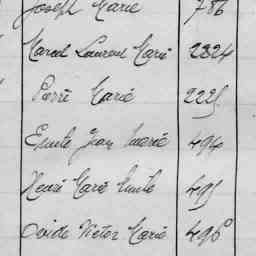 Joseph Marie 786
Marcel Laurent Marie 2324
Pierre Marie 2225
Emile Jean Marie 494
Henri Marie Emile 495
Ovide Victor Marie 496